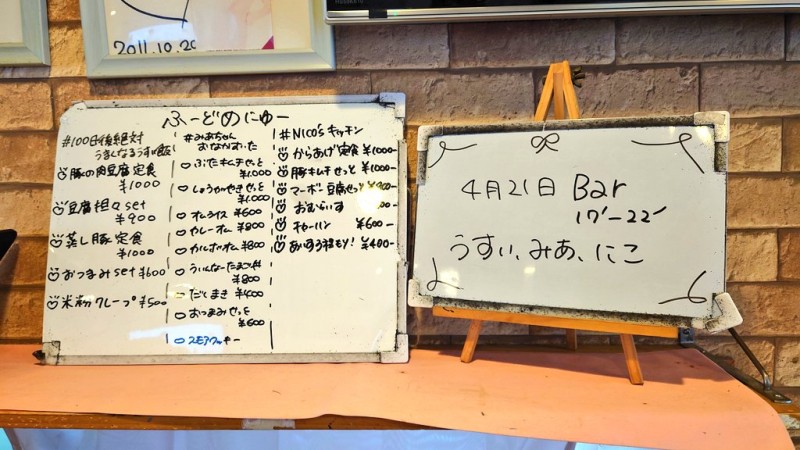 2011.10.20
ふーどめにゅー
#100日後絶対
うまくなるうすい飯
豚の肉豆腐定食
¥1000
豆腐担々set
¥900
蒸し豚定食
¥1000
おつまみset ¥600
米粉クレープ ¥500
#みあちゃん
おなかすいた
ぶたキムチせっと
¥1000
しょうがやきせっと
¥1000
オムライス ¥600
カレーオム ¥800
カルボオム ¥800
ういんなーたまご丼
¥800
だしまき ¥400
おつまみせっと
¥600
スモアクッキー
#NICO'sキッチン
からあげ定食 ¥1000-
豚キムチせっと ¥1000-
マーボー豆腐せっと ¥900-
おむらいす
チャーハン ¥600-
あいすう杯もり! ¥400-
4月21日 Bar
17-22
うすい、みあ、にこ